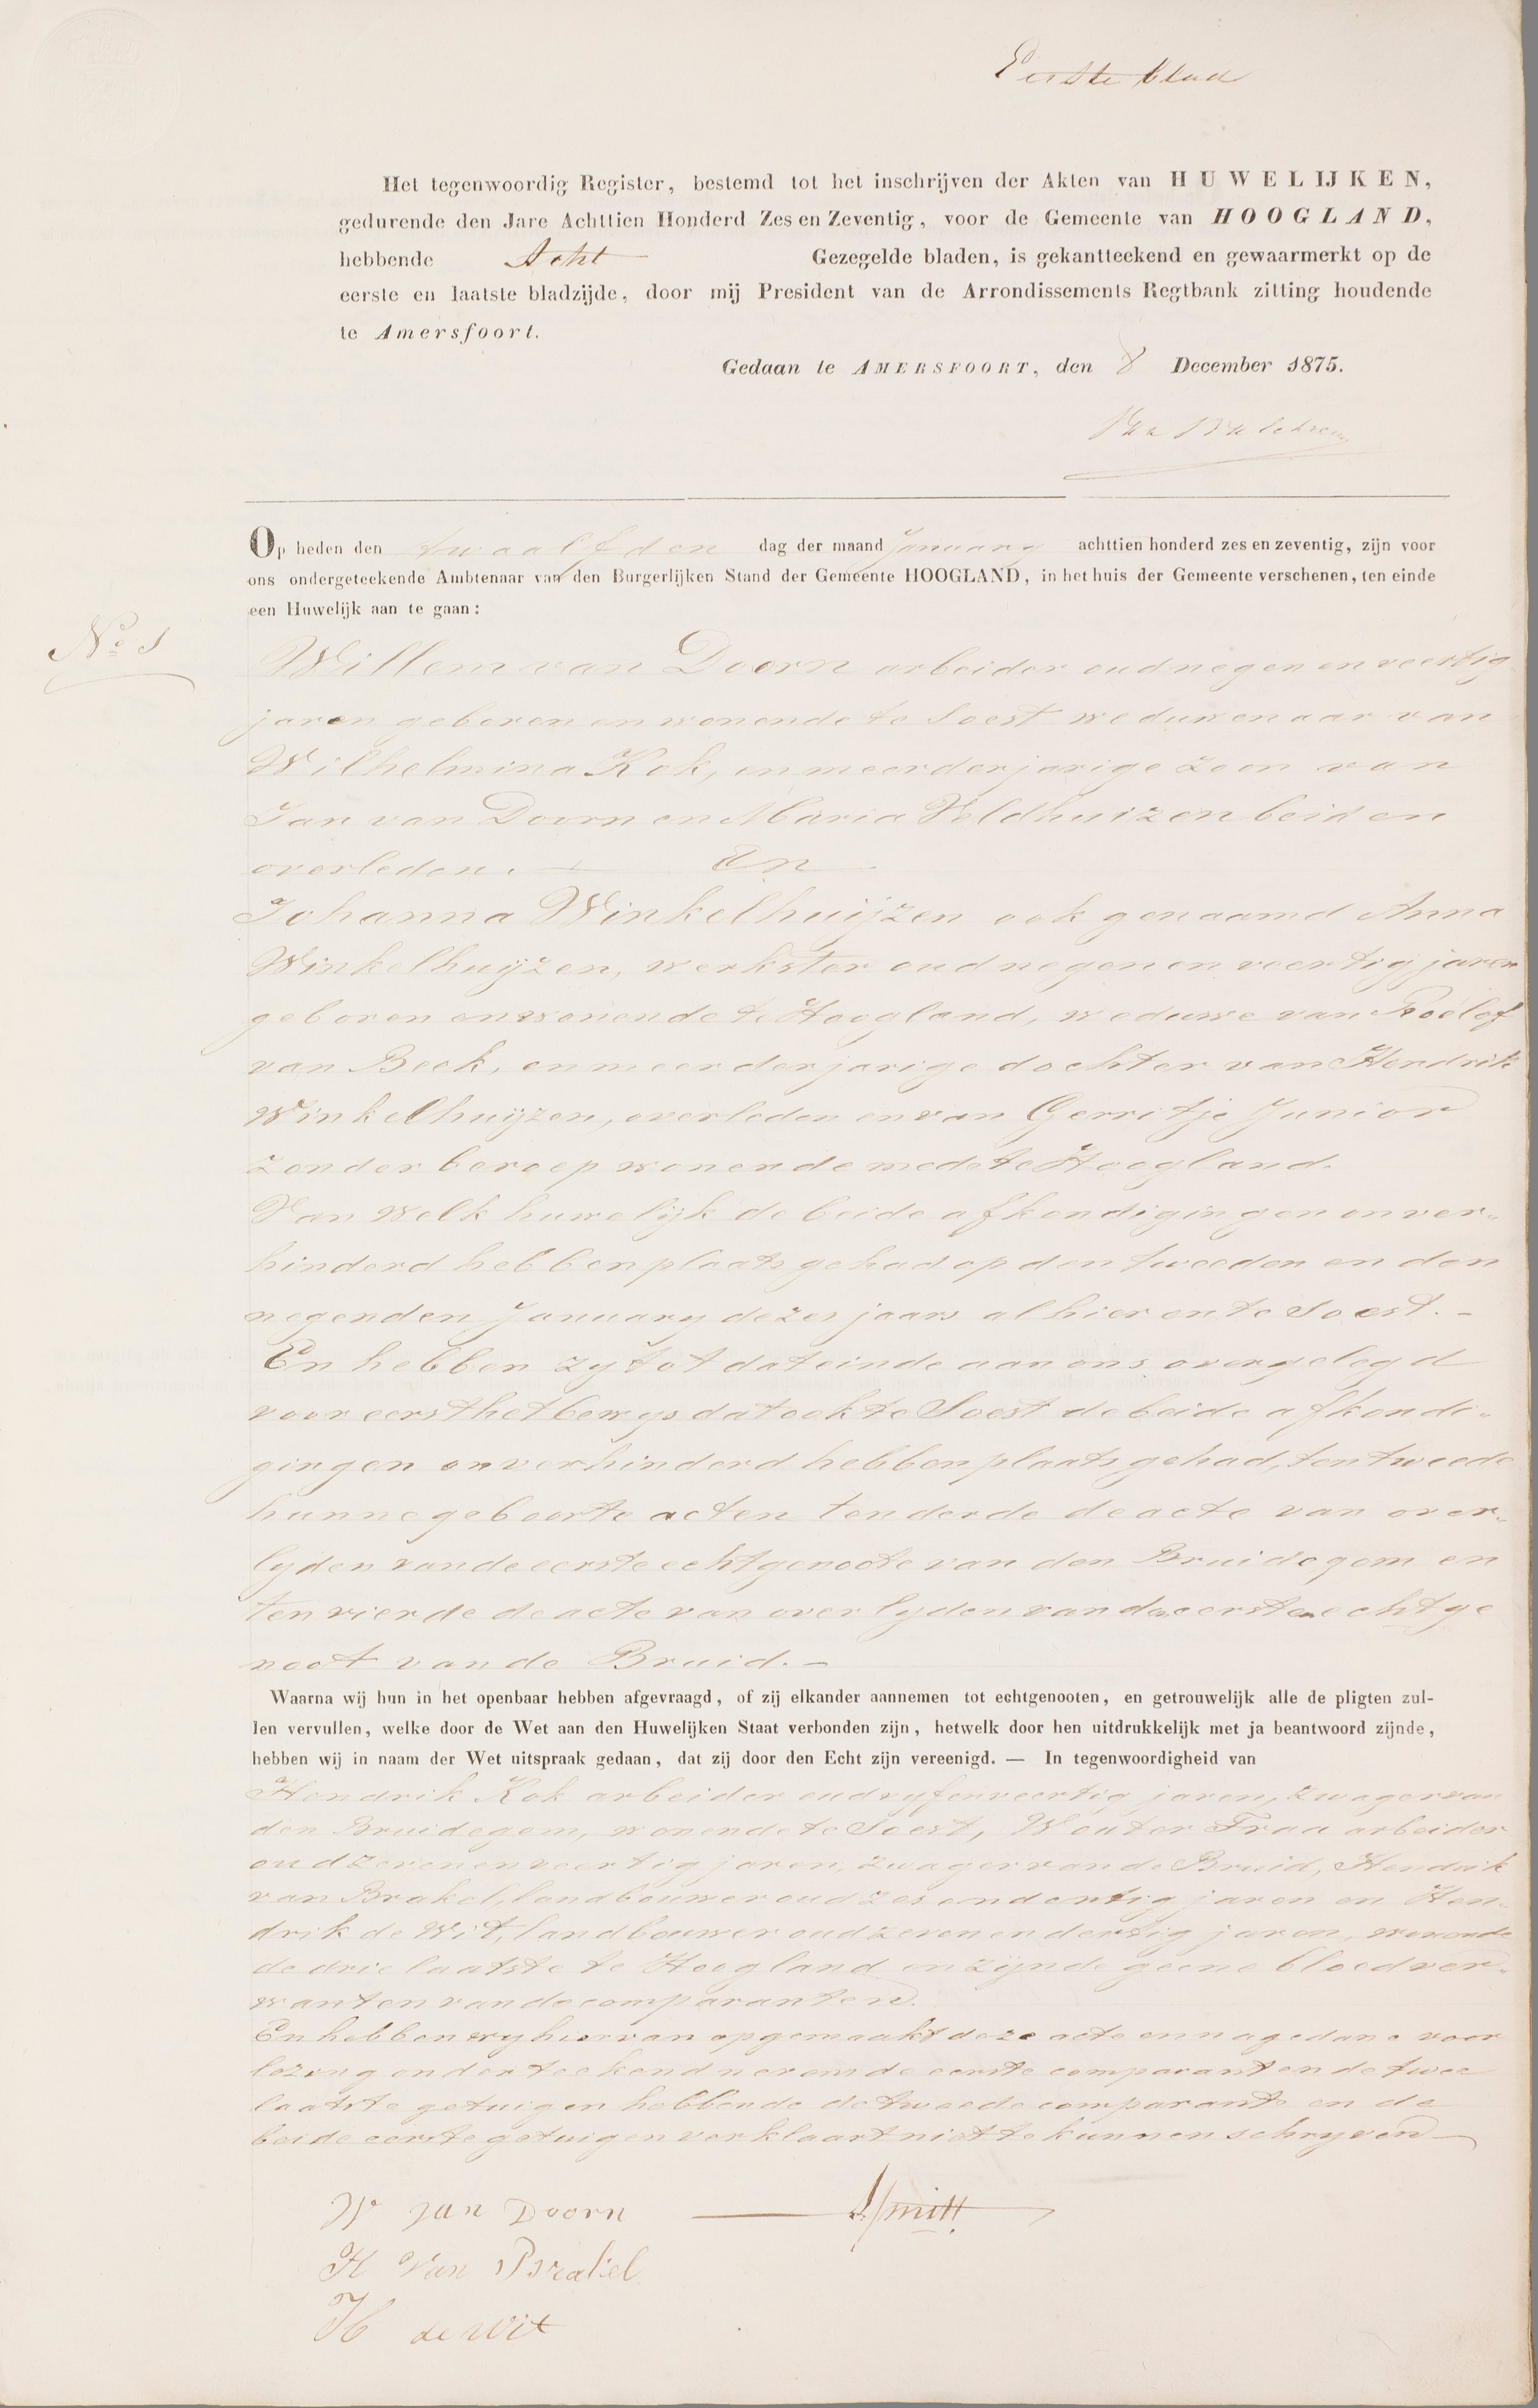 Eerste blad
Het tegenwoordig Register, bestemd tot het inschrijven der Akten van HUWELIJKEN,
gedurende den Jare Achttien Honderd Zes en Zeventig, voor de Gemeente van HOOGLAND,
hebbende Acht Gezegelde bladen, is gekantteekend en gewaarmerkt op de
eerste en laatste bladzijde, door mij President van de Arrondissements Regtbank zitting houdende
te Amersfoort.
Gedaan te AMERSFOORT, den 8 December 1875.
Op heden den twaalfden dag der maand January achttien honderd zes en zeventig, zijn voor
ons ondergeteekende Ambtenaar van den Burgerlijken Stand der Gemeente HOOGLAND, in het huis der Gemeente verschenen, ten einde
een Huwelijk aan te gaan:
No. 1
Willem van Doorn arbeider oud negen en veertig
jaren geboren en wonende te Soest weduwenaar van
Wilhelmina Kok, en meerderjarige zoon van
Jan van Doorn en Maria Veldhuizen beiden
overleden. — En —
Johanna Winkelhuijzen ook genaamd Anna
Winkelhuijzen, werkster oud negen en veertig jaren
geboren en wonende te Hoogland, weduwe van Roelof
van Beek, en meerderjarige dochter van Hendrik
Winkelhuijzen, overleden en van Gerritje Junior
zonder beroep wonende mede te Hoogland.
Van welk huwelijk de beide afkondigingen onver-
hinderd hebben plaats gehad op den tweeden en den
negenden January dezes jaars alhier en te Soest. –
En hebben zy tot dat einde aan ons overgelegd
voor eerst het bewys dat ook te Soest de beide afkondi-
gingen onverhinderd hebben plaats gehad, ten tweede
hunne geboorte acten ten derde de acte van over-
lyden van de eerste echtgenoote van den Bruidegom en
ten vierde de acte van overlyden van den eersten echtge
noot van de Bruid. –
Waarna wij hun in het openbaar hebben afgevraagd, of zij elkander aannemen tot echtgenooten, en getrouwelijk alle de pligten zul-
len vervullen, welke door de Wet aan den Huwelijken Staat verbonden zijn, hetwelk door hen uitdrukkelijk met ja beantwoord zijnde,
hebben wij in naam der Wet uitspraak gedaan, dat zij door den Echt zijn vereenigd. — In tegenwoordigheid van
Hendrik Kok arbeider oud vyfenveertig jaren, zwager van
den Bruidegom, wonende te Soest, Wouter Traa arbeider
oud zeven en veertig jaren, zwager van de Bruid, Hendrik
van Brakel, landbouwer oud zes en dertig jaren en Hen-
drik de Wit, landbouwer oud zeven en dertig jaren, wonende
de drie laatste te Hoogland en zijnde geene bloedver-
wanten van de comparanten.
En hebben wy hiervan opgemaakt deze acte en na gedane voor
lezing onderteekend nevens de eerste comparant en de twee
laatste getuigen hebbende de tweede comparante en de
beide eerste getuigen verklaart niet te kunnen schryven —
W van Doorn
Smitt
H van Brakel
H de Wit